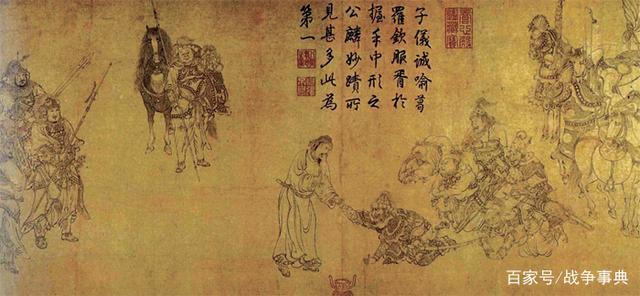 子儀誠喻葛
羅欽服胥於
握手中形之
公麟妙蹟所
見甚多此為
第一
百家号/战争事典